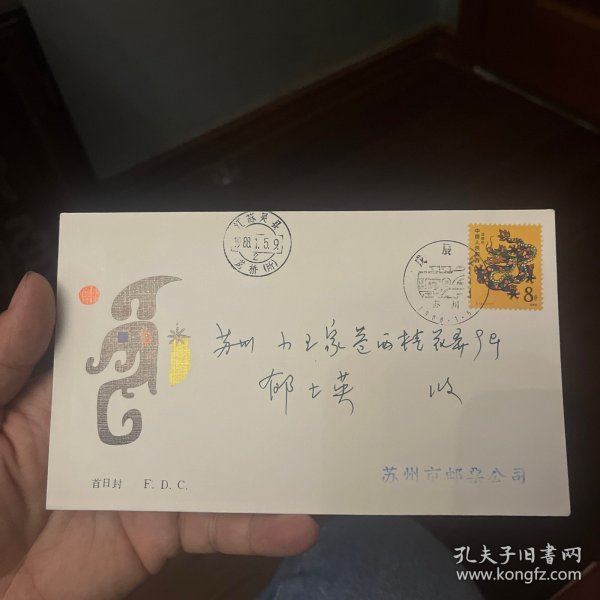 江苏吴县
1988.1.5.9
2
戊辰
苏州
1988.1.5
中国人民邮政
8分
苏州 大王家巷西桂花弄9号
郁士英 收
首日封 F. D. C.
苏州市邮票公司
孔夫子旧书网
www.kongfz.com